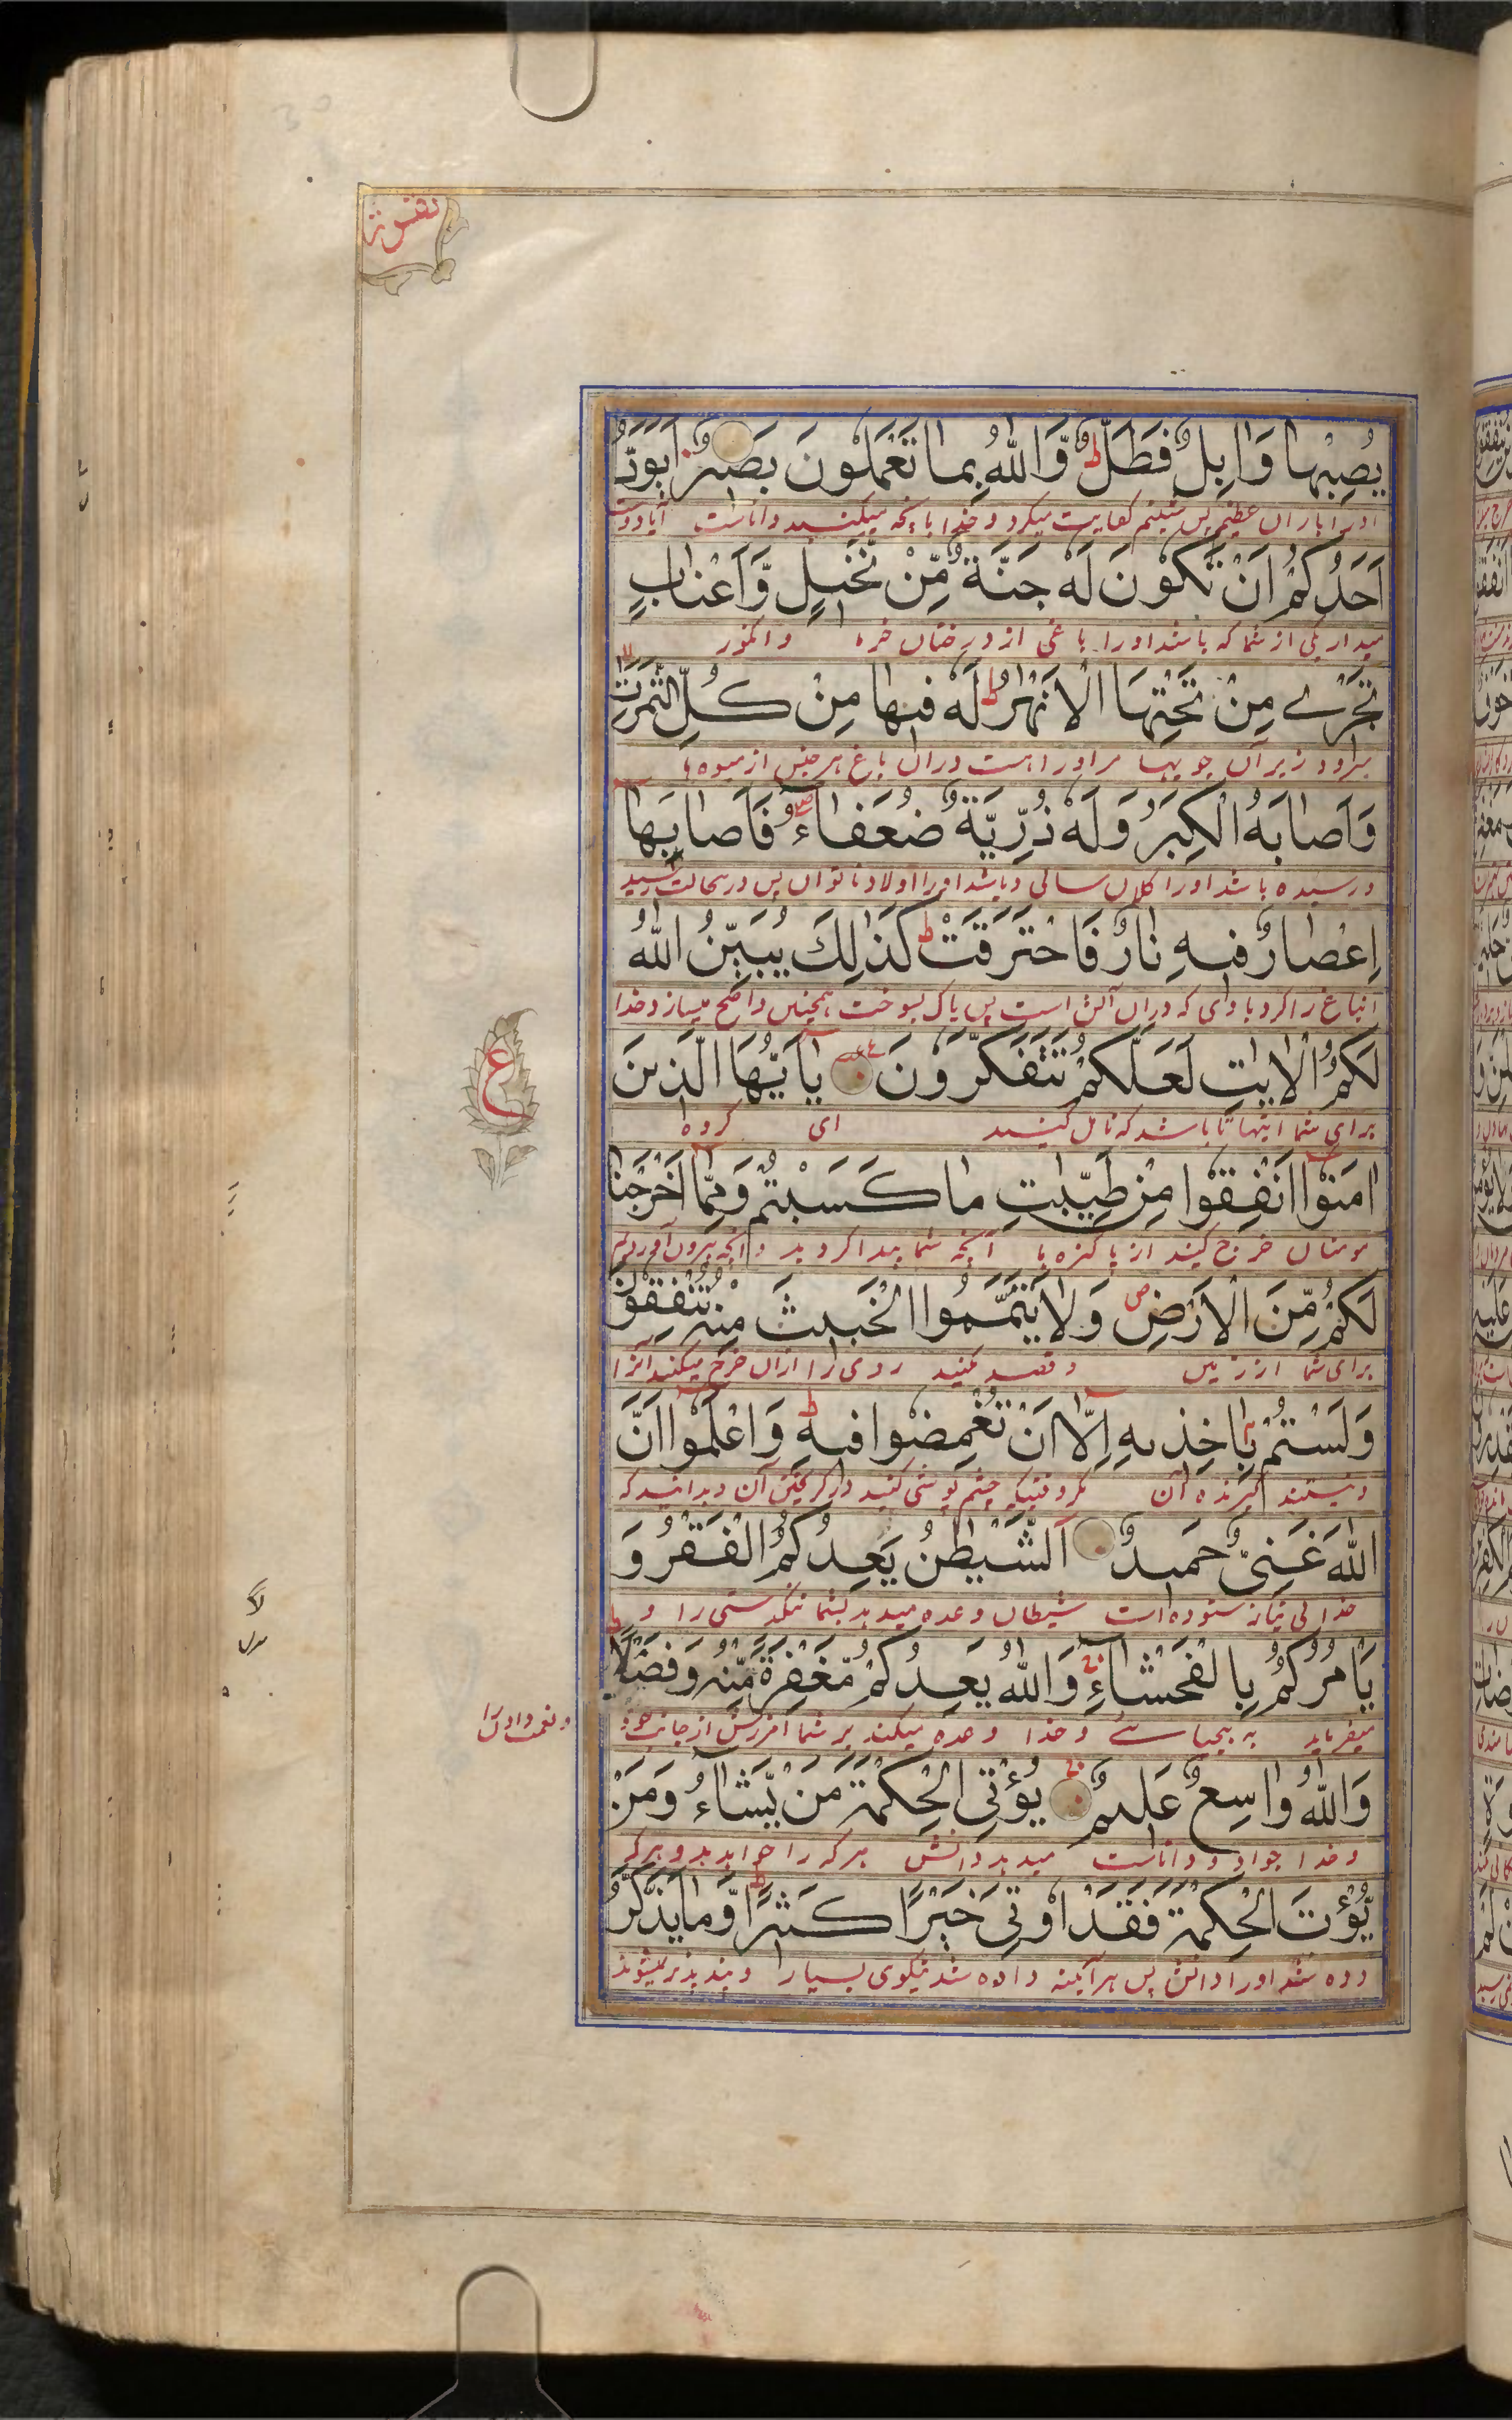 يُصِبْهَا وَابِلٌ فَطَلٌّ ط وَّاللّٰهُ بِمَا تَعْمَلُونَ بَصِيرٌ اَيَوَدُّ
اورا باران عظیم پس شبنم کفایت میکرد و خدا بآنچه میکنید داناست آیا دوست
اَحَدُكُمْ اَنْ تَكُوْنَ لَهٗ جَنَّةٌ مِّنْ نَّخِيْلٍ وَّاَعْنَابٍ
میدارد یکی از شما که باشد اورا باغی از درختان خرما و انگور
تَجْرِے مِنْ تَحْتِهَا الْاَنْهٰرُ ط لَهٗ فِيهَا مِنْ كُلِّ الثَّمَرٰتِ لا
میرود زیر آن جویها مر اورا هست دران باغ هر جنس از میوه ها
وَاَصَابَهُ الْكِبَرُ وَلَهٗ ذُرِّيَّةٌ ضُعَفَآءُ صلے فَاَصَابَهَآ
و رسیده باشد اورا کلان سالی و باشد اورا اولاد ناتوان پس درینحالت رسید
اِعْصَارٌ فِيهِ نَارٌ فَاحْتَرَقَتْ ط كَذٰلِكَ يُبَيِّنُ اللّٰهُ
انباغ را گردبادی که دران آتش است پس پاک بسوخت همچنین واضح میسازد خدا
لَكُمُ الْاٰيٰتِ لَعَلَّكُمْ تَتَفَكَّرُوْنَ يٰٓاَيُّهَا الَّذِينَ
برای شما آیتها تا باشد که تامل کنید ای گروه
ع
اٰمَنُوْٓا اَنْفِقُوْا مِنْ طَيِّبٰتِ مَا كَسَبْتُمْ وَمِمَّآ اَخْرَجْنَا
مومنان خرج کنید از پاکیزه ها آنچه شما پیدا کردید و آنچه بیرون آوردیم
لَكُمْ مِّنَ الْاَرْضِ ص وَلَا تَيَمَّمُوا الْخَبِيثَ مِنْهُ تُنْفِقُوْنَ
برای شما از زمین و قصد مکنید ردی را ازان خرج میکنید آنرا
وَلَسْتُمْ بِاٰخِذِيهِ اِلَّآ اَنْ تُغْمِضُوْا فِيهِ ط وَاعْلَمُوْٓا اَنَّ
و نیستید گیرنده آن مگر وقتیکه چشم پوشی کنید در گرفتن آن و بدانید که
اللّٰهَ غَنِيٌّ حَمِيدٌ اَلشَّيْطٰنُ يَعِدُكُمُ الْفَقْرَ وَ
خدا بی نیاز ستوده است شیطان وعده میدهد بشما تنگدستی را و
يَاْمُرُكُمْ بِالْفَحْشَآءِ ج وَاللّٰهُ يَعِدُكُمْ مَّغْفِرَةً مِّنْهُ وَفَضْلًا ط
میفرماید به بیحیائی و خدا وعده میکند بر شما آمرزش از جانب خود
و نعمت دادن را
وَاللّٰهُ وَاسِعٌ عَلِيمٌ يُؤْتِي الْحِكْمَةَ مَنْ يَّشَآءُ وَمَنْ
و خدا جواد و داناست میدهد دانش هرکه را خواهد و هرکه
يُّؤْتَ الْحِكْمَةَ فَقَدْ اُوْتِيَ خَيْرًا كَثِيرًا ط وَّمَا يَذَّكَّرُ
داده شد اورا دانش پس هر آئینه داده شد نیکوی بسیار را و پند پذیر نمیشوند